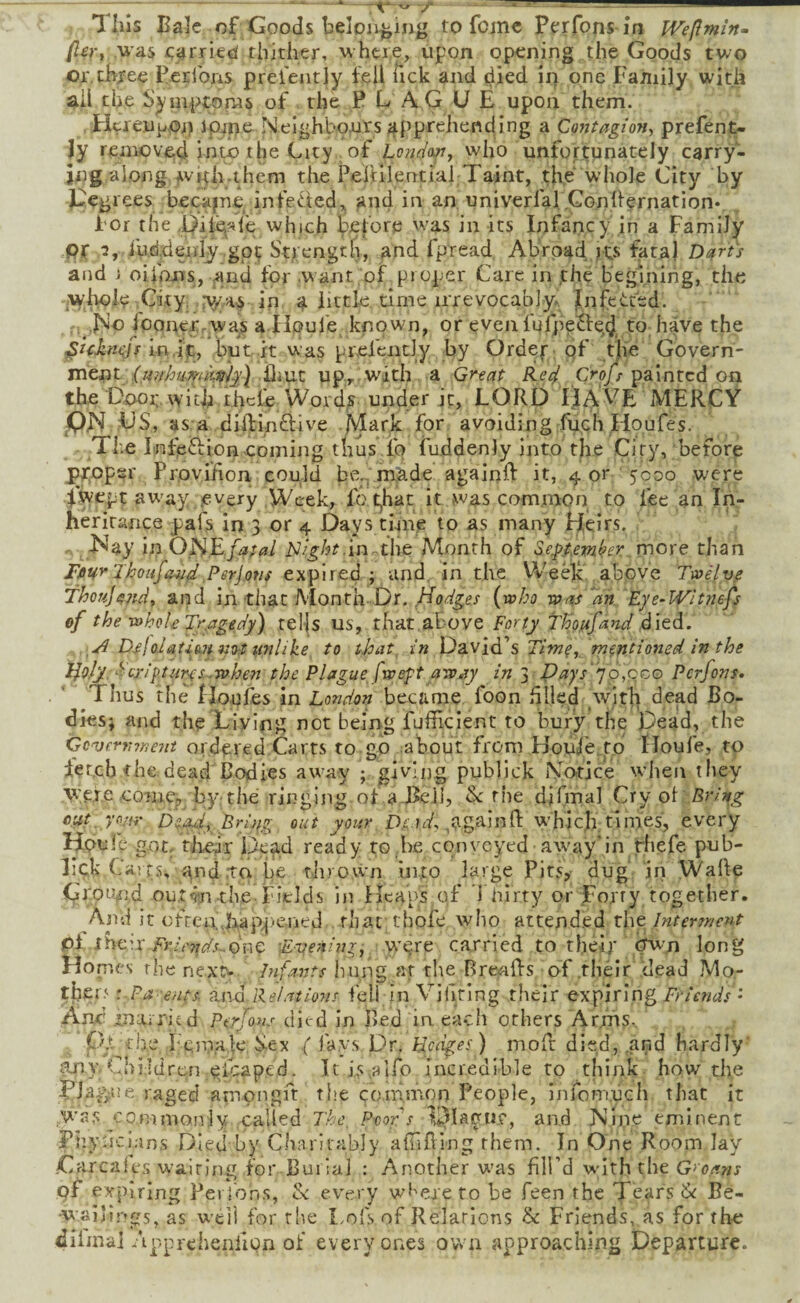 This Bale of Goods belonging to ſome Perſons in Weſtmin-
ſter, was carried thither, where, upon opening the Goods two
or three Perſons preſently fell ſick and died in one Family with
all the Symptoms of the P L A G U E upon them.
Hereupon ſome Neighbours apprehending a Contagion, preſent-
ly removed into the City of London, who unfortunately carry-
ing along with them the Peſtilential Taint, the whole City by
Degrees became infected, and in an univerſal Conſternation.
For the Diſeaſe which before was in its Infancy in a Family
or 2, ſuddenly got Strength, and ſpread Abroad its fatal Darts
and Poiſons, and for want of proper Care in the begining, the
whole City was in a little time irrevocably Infected.
No ſooner was a Houſe known, or even ſuſpected to have the
Sickneſs in it, but it was preſently by Order of the Govern-
ment (unhumanly) ſhut up, with a Great Red Croſs painted on
the Door with theſe Words under it, LORD HAVE MERCY
ON US, as a diſtinctive Mark for avoiding ſuch Houſes.
The Infection coming thus ſo ſuddenly into the City, before
proper Proviſion could be made againſt it, 4 or 5000 were
ſwept away every Week, ſo that it was common to ſee an In-
heritance paſs in 3 or 4 Days time to as many Heirs.
Nay in ONE fatal Night in the Month of September more than
Four Thouſand Perſons expired; and in the Week above Twelve
Thouſand, and in that Month Dr. Hodges (who was an Eye-Witneſs
of the whole Tragedy) tells us, that above Forty Thouſand died.
A Deſolation not unlike to that in David's Time, mentioned in the
Holy Scriptures when the Plague ſwept away in 3 Days 70,000 Perſons.
Thus the Houſes in London became ſoon filled with dead Bo-
dies; and the Living not being ſufficient to bury the Dead, the
Government ordered Carts to go about from Houſe to Houſe, to
fetch the dead Bodies away; giving publick Notice when they
were come, by the ringing of a Bell, & the diſmal Cry of Bring
out your Dead, Bring out your Dead, againſt which times, every
Houſe got their Dead ready to be conveyed away in theſe pub-
lick Carts, and to be thrown into large Pits, dug in Waſte
Ground out in the Fields in Heaps of Thirty or Forty together.
And it often happened that thoſe who attended the Interment
of their Friends one Evening, were carried to their own long
Homes the next. Infants hung at the Breaſts of their dead Mo-
thers: Parents and Relations fell in Viſiting their expiring Friends:
And married Perſons died in Bed in each others Arms.
Of the Female Sex (ſays Dr. Hodges) moſt died, and hardly
any Children eſcaped. It is alſo incredible to think how the
Plague raged amongſt the common People, inſomuch that it
was commonly called The Poor's Plague, and Nine eminent
Phyſicians Died by Charitably aſſiſting them. In One Room lay
Carcaſes waiting for Burial: Another was fill'd with the Groans
of expiring Perſons, & every where to be ſeen the Tears & Be-
wailings, as well for the Loſs of Relations & Friends, as for the
diſmal Apprehenſion of every ones own approaching Departure.